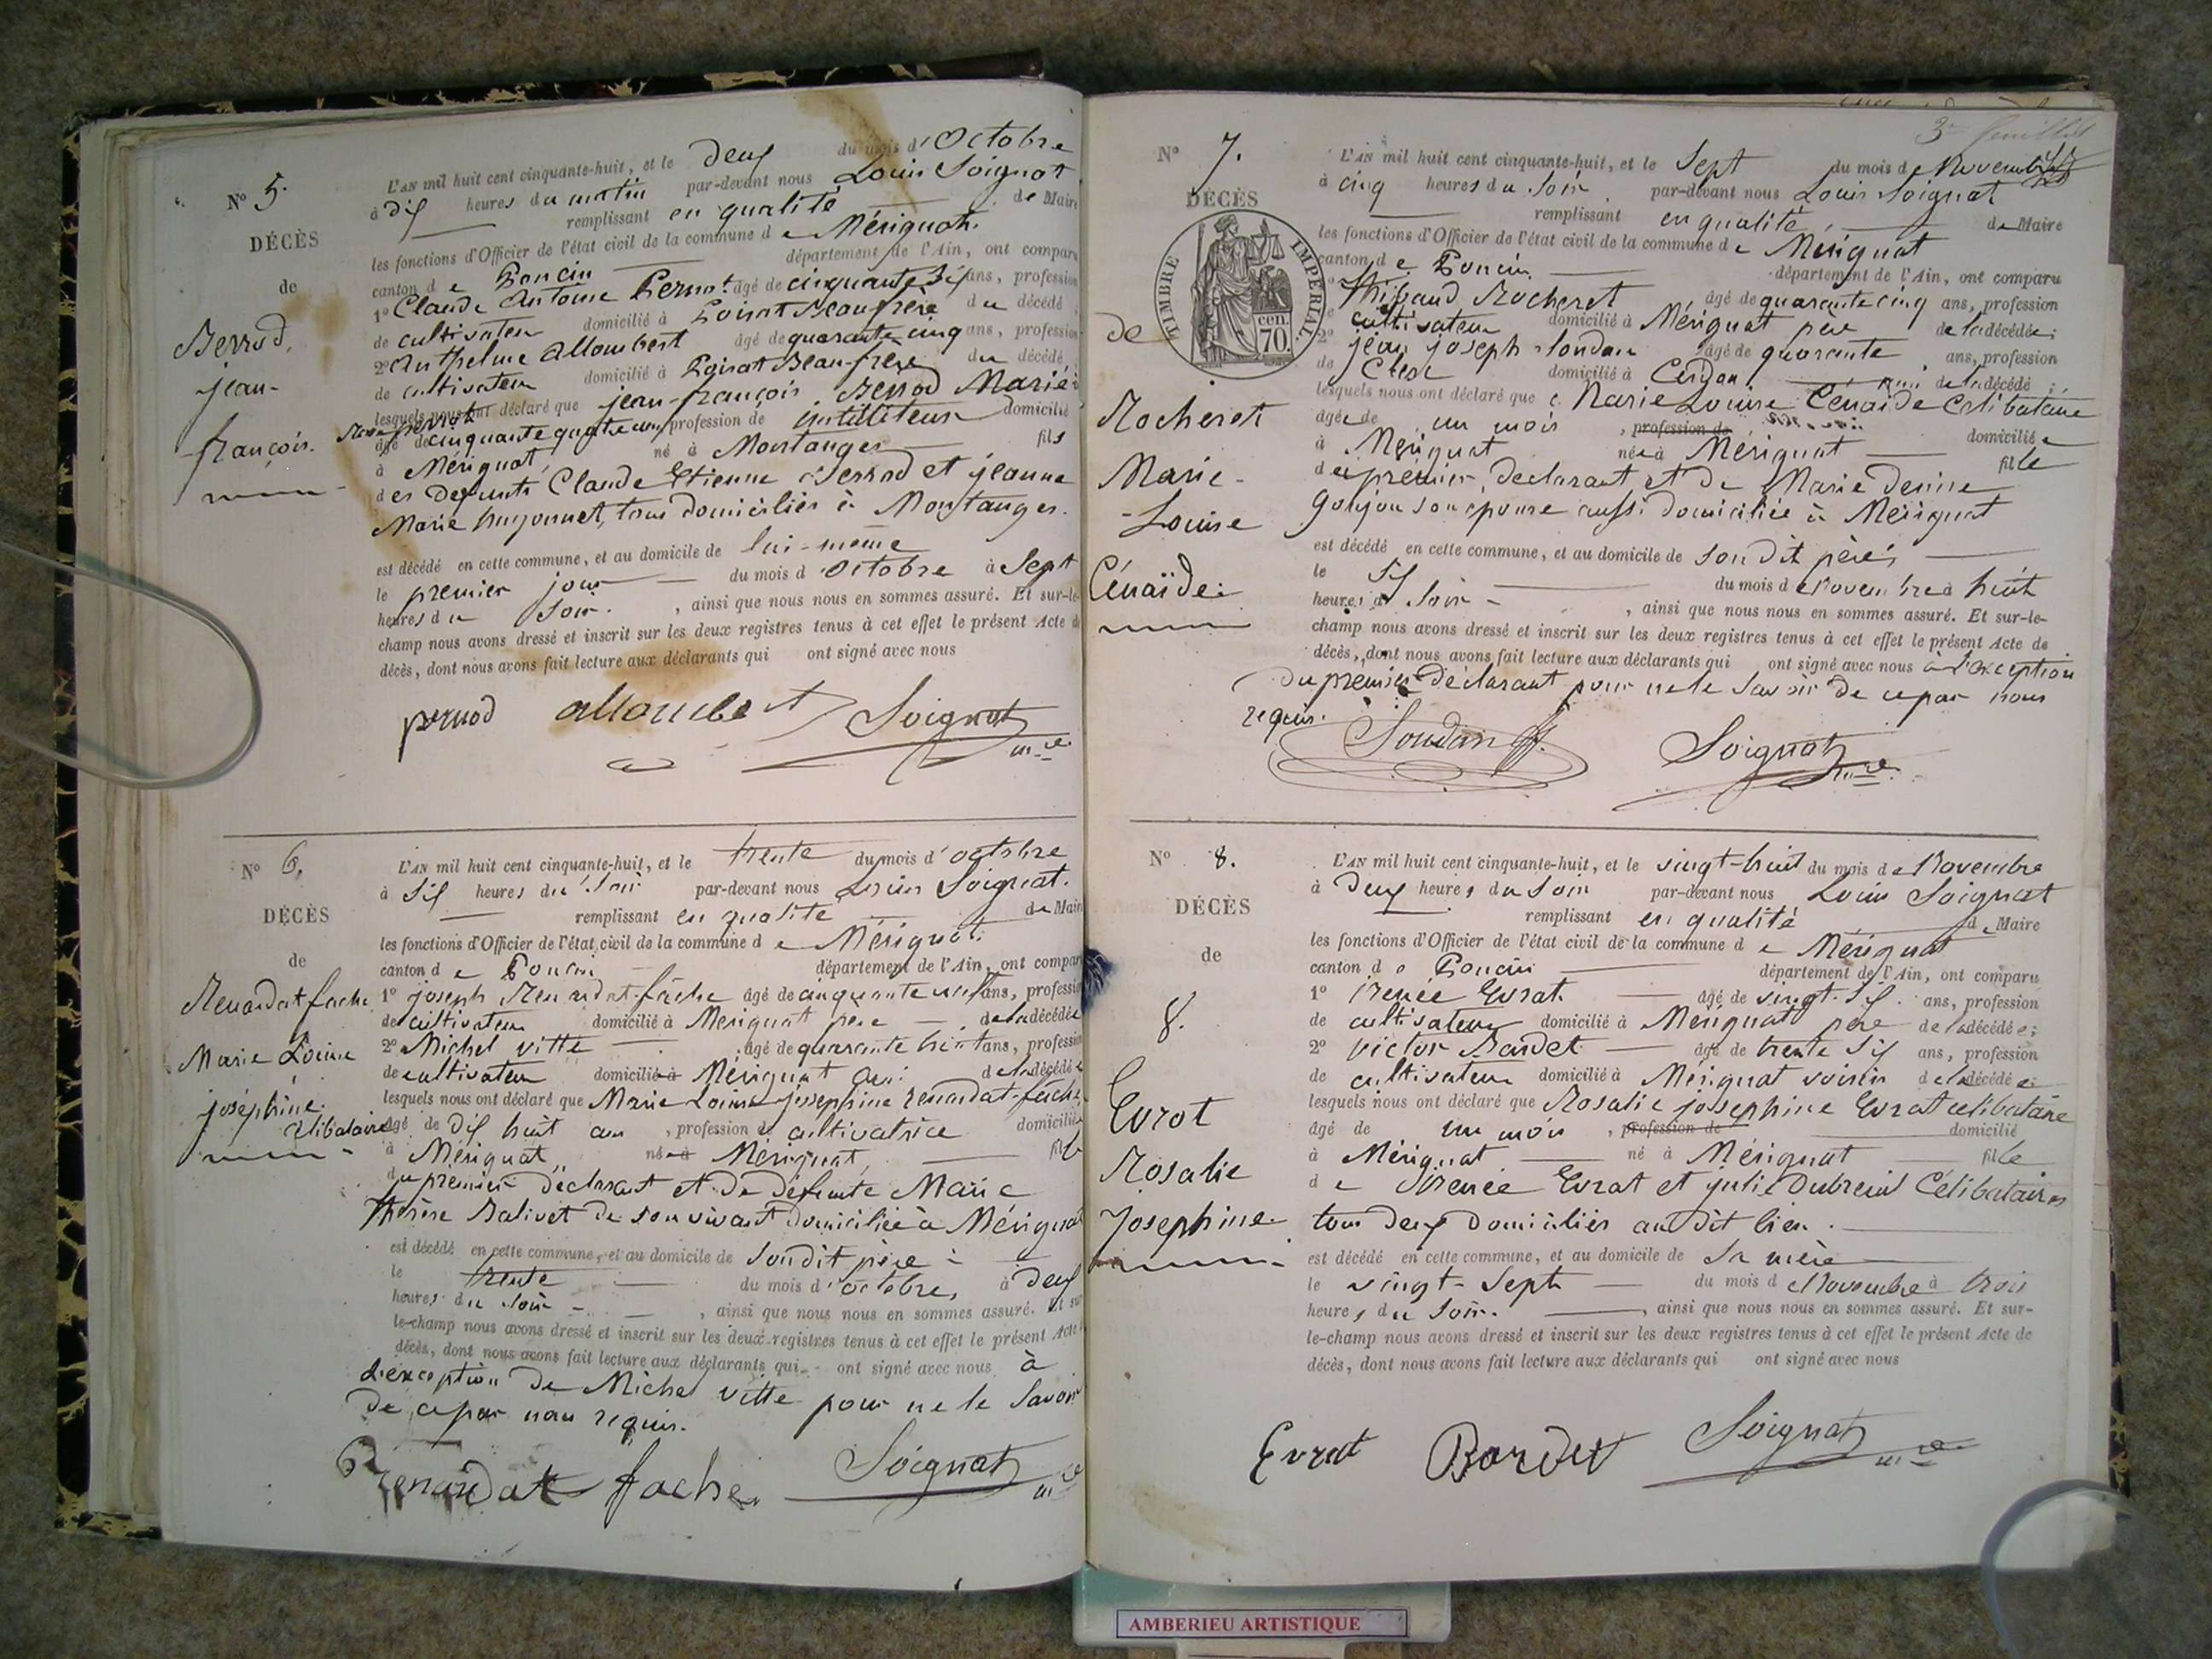 N° 5.
DÉCÈS
de
Berrod,
jean-
françois.
L'AN mil huit cent cinquante-huit, et le deux du mois d'Octobre
à dix heures du matin par-devant nous Louis Soignat
remplissant en qualité de Maire
les fonctions d'Officier de l'état civil de la commune de Mérignat.
canton de Poncin département de l'Ain, ont comparu
1° Claude Antoine Pernod âgé de cinquante six ans, profession
de cultivateur domicilié à Poisat Beaufrère du décédé
2° Anthelme Allombert âgé de quarante cinq ans, profession
de cultivateur domicilié à Poisat Beau-frère du décédé,
lesquels nous ont déclaré que jean-françois Berrod Marié à
âgé de cinquante quatre ans profession de instituteur domicilié
à Mérignat, né à Montanges fils
des defunts Claude Etienne Berrod et jeanne
Marie hugonnet, tous domiciliés à Montanges.
est décédé en cette commune, et au domicile de lui-même
le premier jour du mois d'octobre à Sept
heures du Soir. , ainsi que nous nous en sommes assuré. Et sur-le-
champ nous avons dressé et inscrit sur les deux registres tenus à cet effet le présent Acte de
décès, dont nous avons fait lecture aux déclarants qui ont signé avec nous
pernod allombert Soignat mre
N° 6.
DÉCÈS
de
Renardat fache
Marie Louise
joséphine.
célibataire
L'AN mil huit cent cinquante-huit, et le trente du mois d'octobre
à Six heures du Soir par-devant nous Louis Soignat.
remplissant en qualité de Maire
les fonctions d'Officier de l'état civil de la commune de Mérignat.
canton de Poncin département de l'Ain, ont comparu
1° joseph Renardat-fâche âgé de cinquante ans, profession
de cultivateur domicilié à Mérignat père de la décédée
2° Michel vitte âgé de quarante huit ans, profession
de cultivateur domicilié à Mérignat ami de la décédée
lesquels nous ont déclaré que Marie Louise Josephine renardat-fâche
âgé de dix huit ans , profession de cultivatrice domiciliée
à Mérignat, née à Mérignat, fille
du premier déclarant et de défunte Marie
thérèse Balivet de son vivant domiciliée à Mérignat
est décédé en cette commune, et au domicile de Son dit père
le trente du mois d'octobre, à deux
heures du Soir , ainsi que nous nous en sommes assuré. Et sur
le-champ nous avons dressé et inscrit sur les deux registres tenus à cet effet le présent Acte de
décès, dont nous avons fait lecture aux déclarants qui ont signé avec nous à
L'exception de Michel vitte pour ne le Savoir
de ce par nous requis.
Renardat fache. Soignat mre
3e feuillet
N° 7.
DÉCÈS
TIMBRE IMPÉRIAL.
cen. 70
de
Rocheret
Marie-
-Louise
Cénaïde.
L'AN mil huit cent cinquante-huit, et le Sept du mois de Novembre
à cinq heures du Soir par-devant nous Louis Soignat
remplissant en qualité, de Maire
les fonctions d'Officier de l'état civil de la commune de Mérignat
canton de Poncin, département de l'Ain, ont comparu
1° Thibaud Rocheret âgé de quarante cinq ans, profession
de cultivateur domicilié à Mérignat père de la décédée;
2° jean joseph Soudan âgé de quarante ans, profession
de domicilié à Cerdon ami de la décédé;
lesquels nous ont déclaré que Marie Louise Cénaïde Célibataire
âgée de un mois , profession de domiciliée
à Mérignat née à Mérignat fille
du premier déclarant et de Marie denise
Goujon Son épouse aussi domiciliée à Mérignat
est décédé en cette commune, et au domicile de Son dit père,
le Six du mois de Novembre à huit
heures du Soir , ainsi que nous nous en sommes assuré. Et sur-le-
champ nous avons dressé et inscrit sur les deux registres tenus à cet effet le présent Acte de
décès, dont nous avons fait lecture aux déclarants qui ont signé avec nous à L'exception
du premier déclarant pour ne le Savoir de ce par nous
requis.
Soudan jj. Soignat mre
N° 8.
DÉCÈS
de
8.
Evrot
Rosalie
Josephine.
L'AN mil huit cent cinquante-huit, et le vingt-huit du mois de Novembre
à Deux heures du Soir par-devant nous Louis Soignat
remplissant en qualité de Maire
les fonctions d'Officier de l'état civil de la commune de Mérignat
canton de Poncin département de l'Ain, ont comparu
1° irenée Evrat. âgé de vingt-Six ans, profession
de cultivateur domicilié à Mérignat père de la décédée;
2° victor Bardet âgé de trente Six ans, profession
de cultivateur domicilié à Mérignat voisin de la décédée
lesquels nous ont déclaré que Rosalie josephine Evrat célibataire
âgé de un mois , profession de domicilié
à Mérignat né à Mérignat fille
de irenée Evrat et julie Dubreuil Célibataires
tous deux domiciliés au dit lieu.
est décédé en cette commune, et au domicile de Sa mère
le vingt-Sept du mois de Novembre à trois
heures du Soir. , ainsi que nous nous en sommes assuré. Et sur-
le-champ nous avons dressé et inscrit sur les deux registres tenus à cet effet le présent Acte de
décès, dont nous avons fait lecture aux déclarants qui ont signé avec nous
Evrat Bardet Soignat mre
AMBERIEU ARTISTIQUE